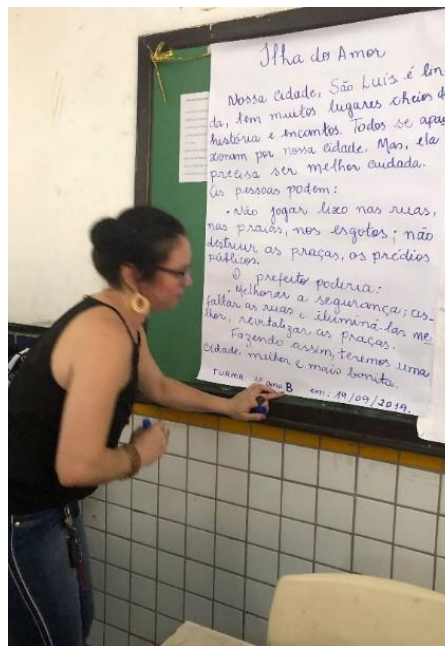 Ilha do Amor
Nossa cidade, São Luís é lin
da, tem muitos lugares cheios de
história e encantos. Todos se apai
xonam por nossa cidade. Mas, ela
precisa ser melhor cuidada.
As pessoas podem:
• Não jogar lixo nas ruas,
nas praias, nos esgotos; não
destruir as praças, os prédios
públicos.
O prefeito poderia:
• Melhorar a segurança; as-
faltar as ruas e iluminá-las me-
lhor, revitalizar as praças.
Fazendo assim, teremos uma
cidade melhor e mais bonita.
TURMA: ano B em: 19/09/2019.